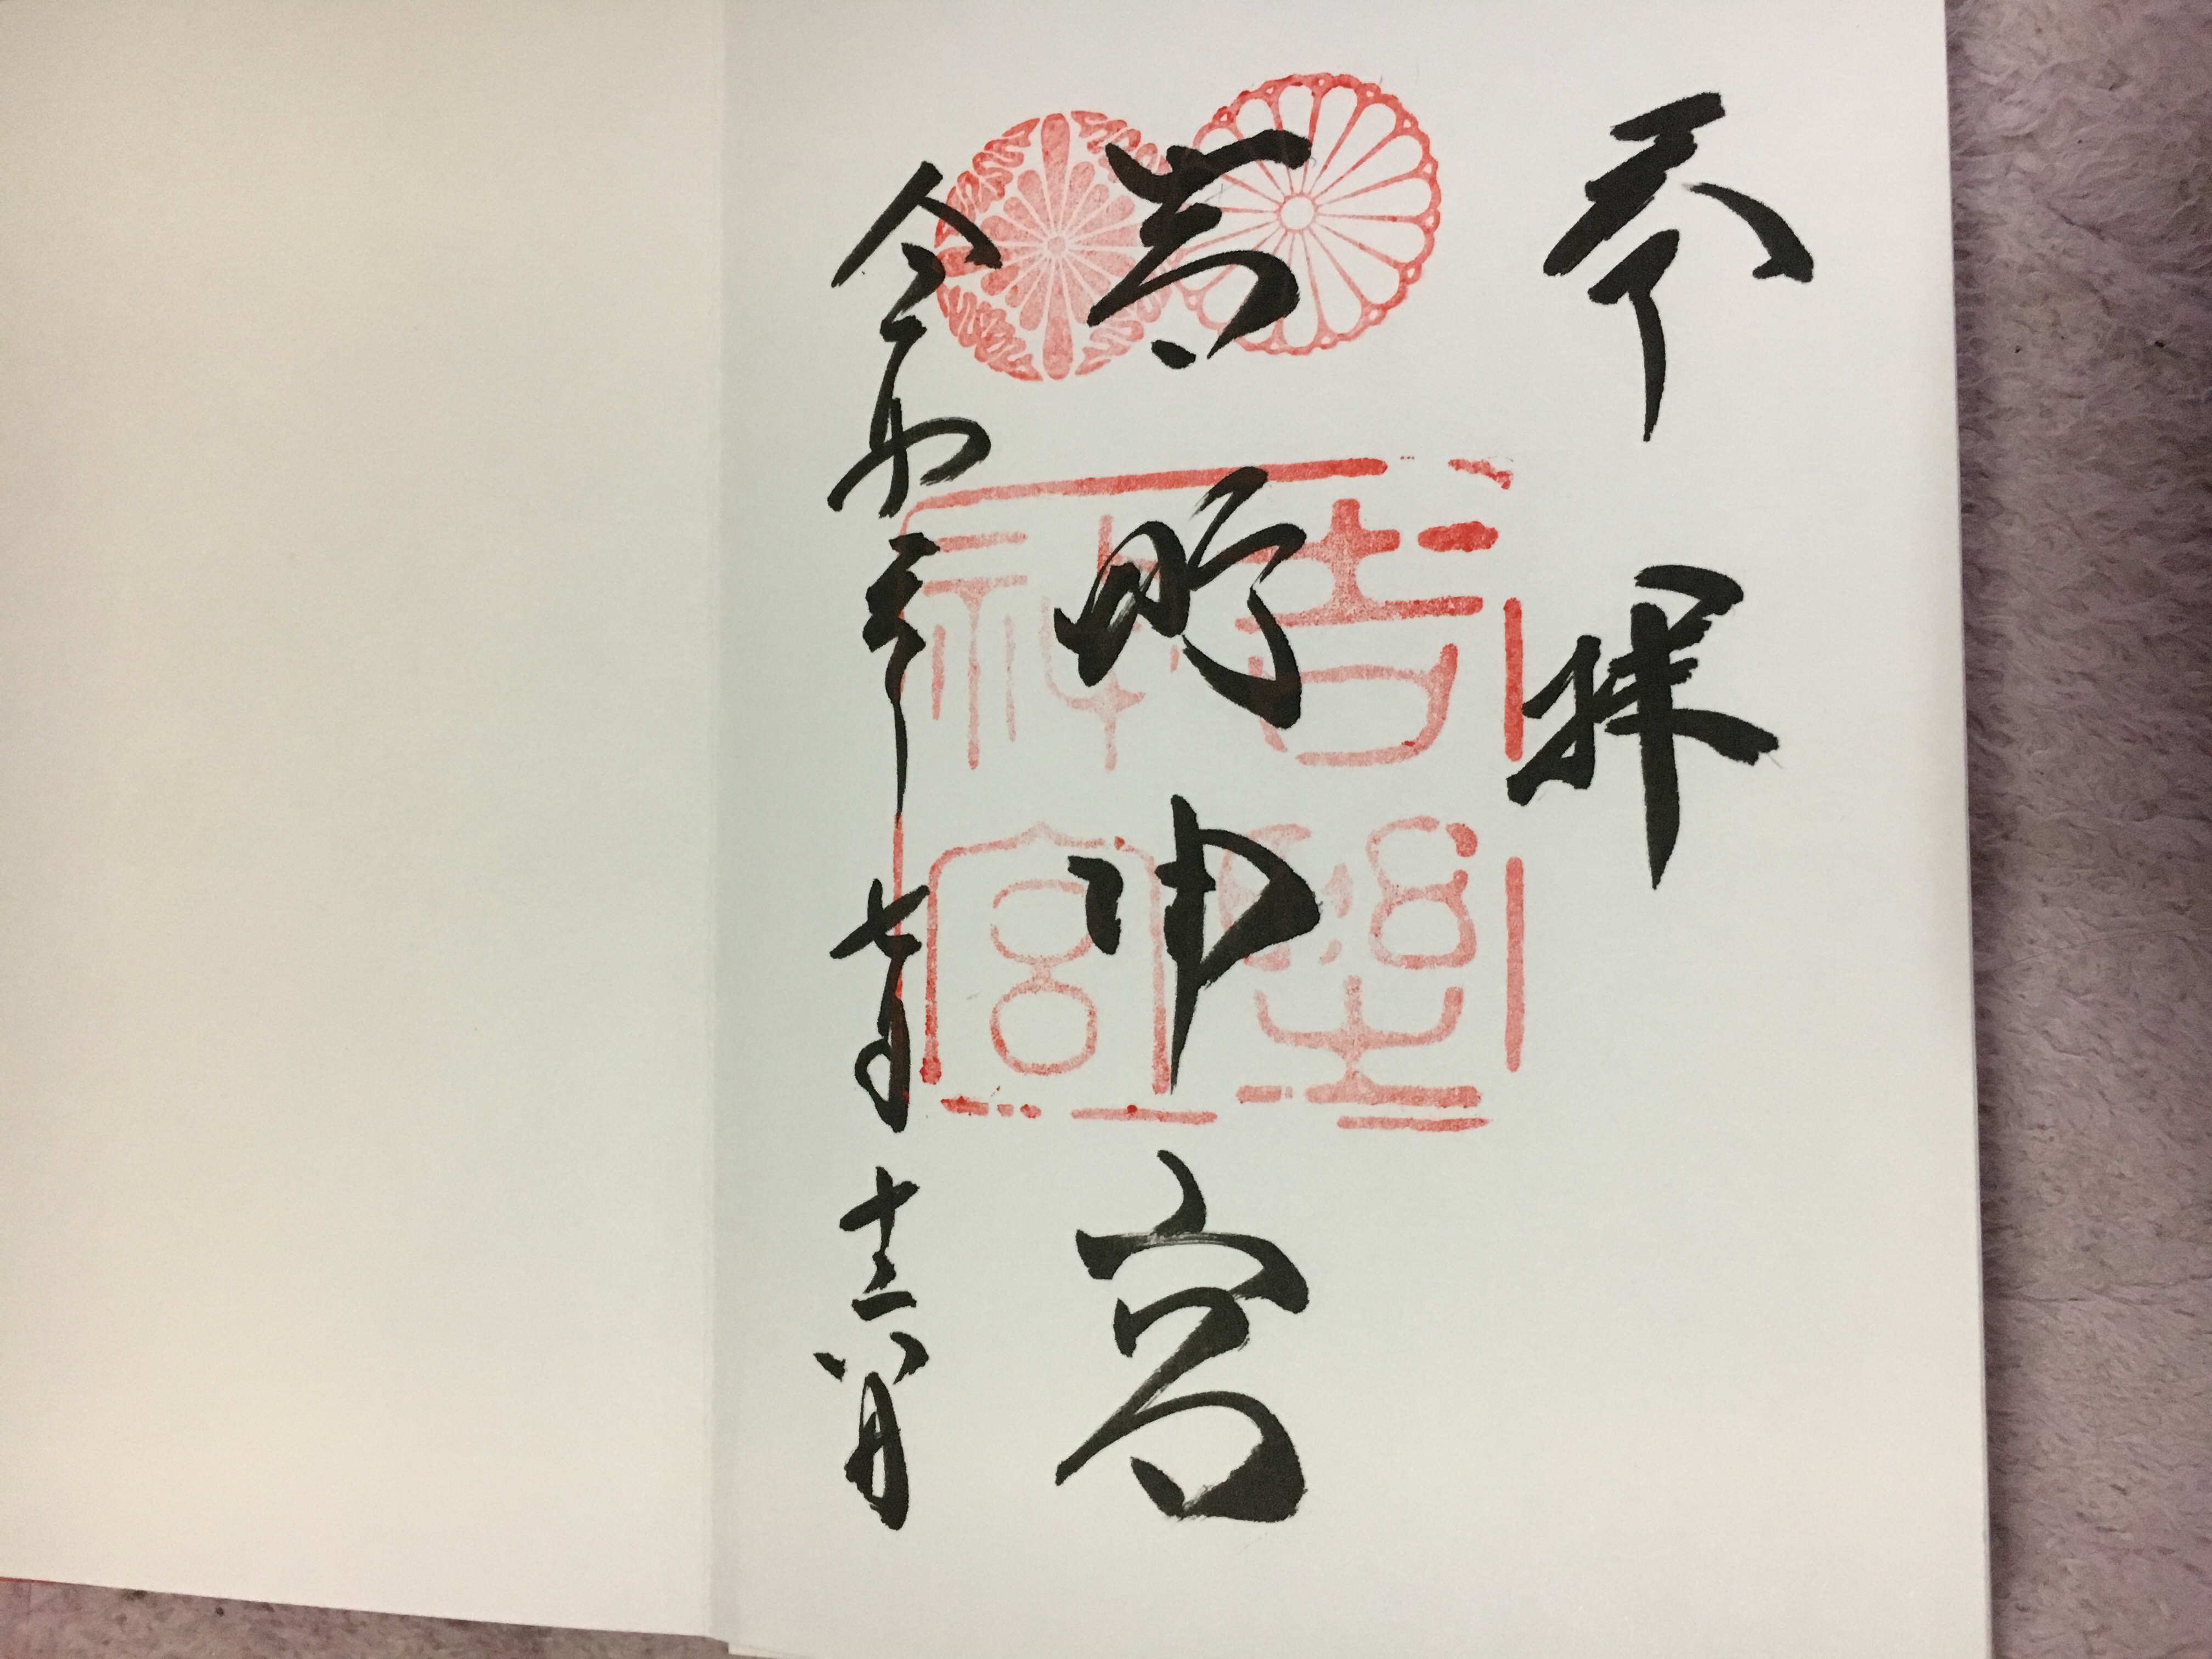 奉拝
吉野神宮
令和元年七月十六日
吉野
神宮